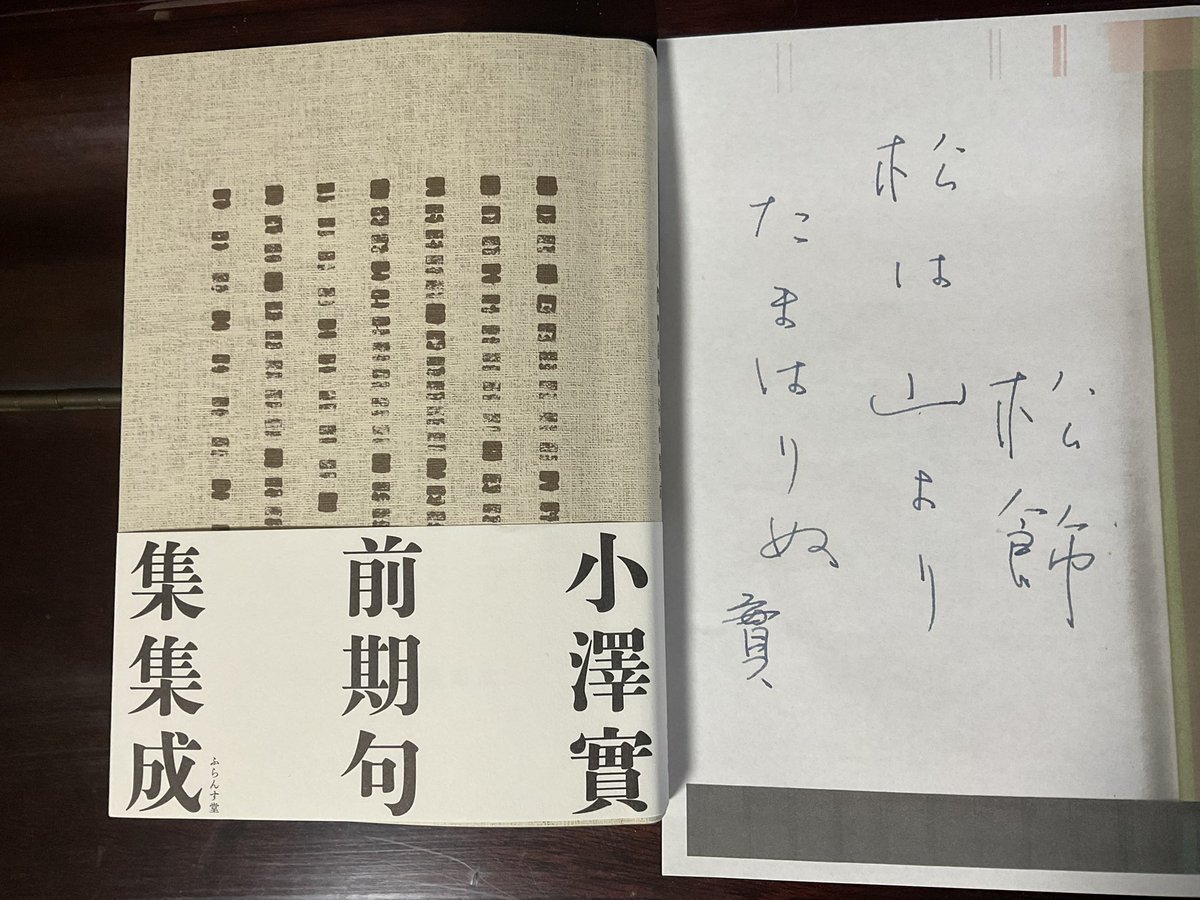 小澤實
前期句
集集成
ふらんす堂
松飾
松は山より
たまはりぬ
實